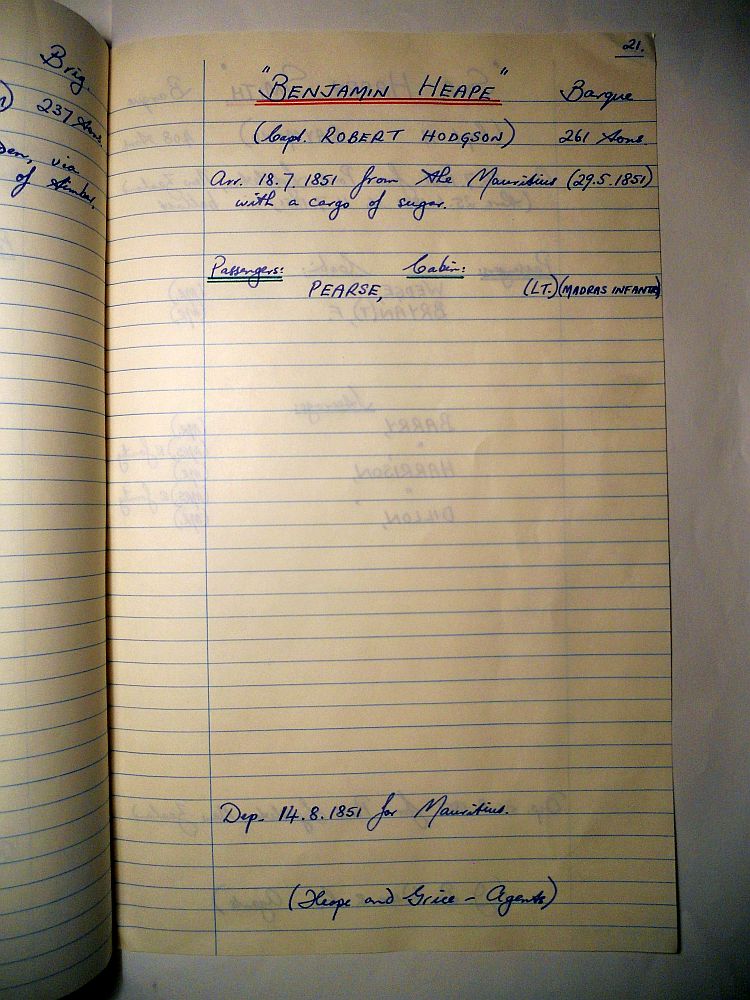 Brig.
237 tons.
via
of timber,
21.
"BENJAMIN HEAPE" Barque
(Capt. ROBERT HODGSON) 261 tons.
Arr. 18.7.1851 from the Mauritius (29.5.1851)
with a cargo of sugar.
Passengers: Cabin:
PEARSE, (LT.) (MADRAS INFANTR)
Dep. 14.8.1851 for Mauritius.
(Heape and Grice - Agents)